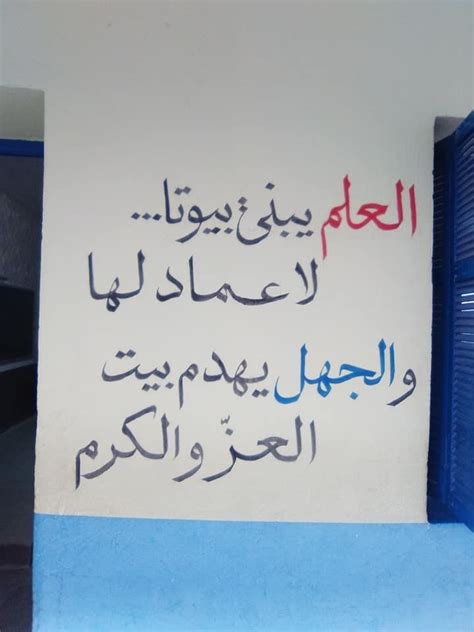 العلم يبني بيوتا...
لا عماد لها
والجهل يهدم بيت
العزّ والكرم